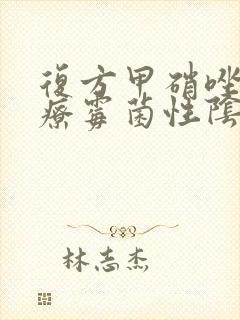 復方甲硝唑
療霉菌性陰
林志杰